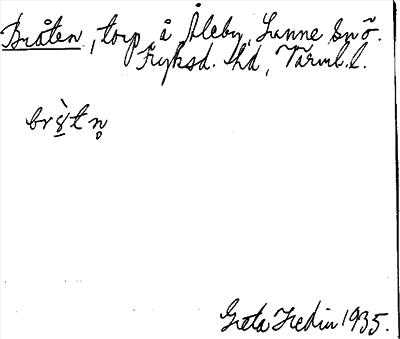 Bråten, torp å Åleby, Sunne snõ.
Fryksd. hd, Värml. l.
brø̀tn̥
Greta Hedin 1935.